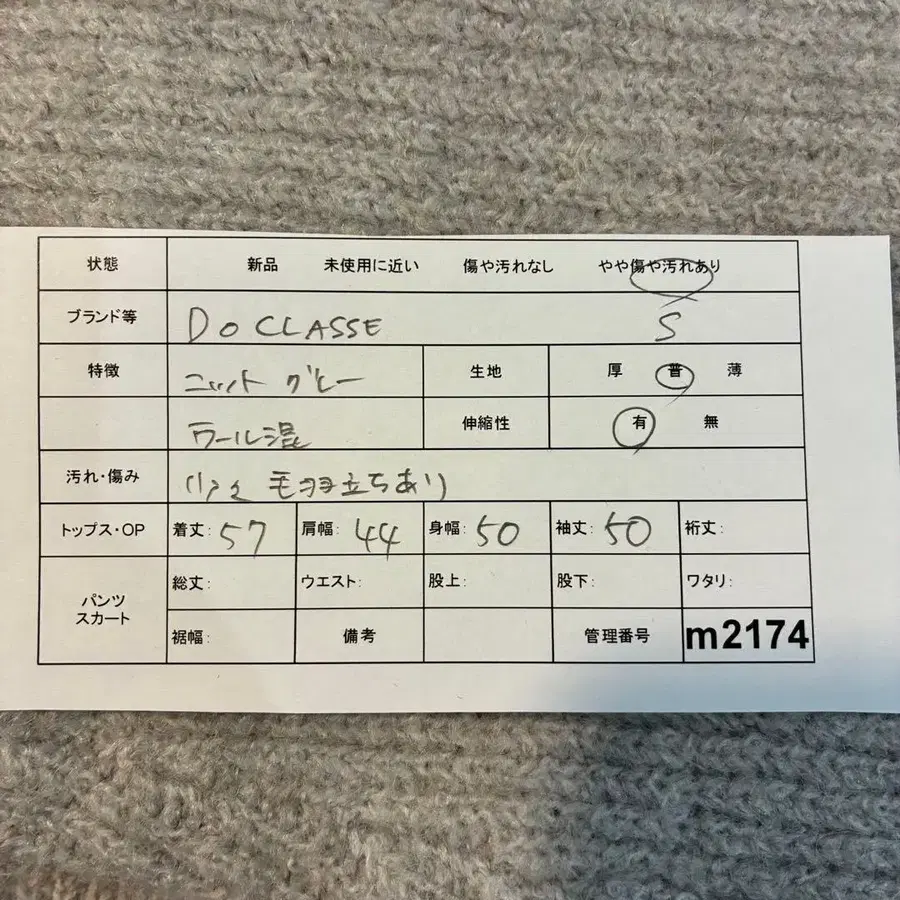 状態 新品 未使用に近い 傷や汚れなし やや傷や汚れあり
ブランド等 DoCLASSE S
特徴 ニット グレー 生地 厚 普 薄
ウール混 伸縮性 有 無
汚れ・傷み 毛羽立ちあり
トップス・OP 着丈: 57 肩幅: 44 身幅: 50 袖丈: 50 裄丈:
パンツ スカート 総丈: ウエスト: 股上: 股下: ワタリ:
裾幅: 備考 管理番号 m2174